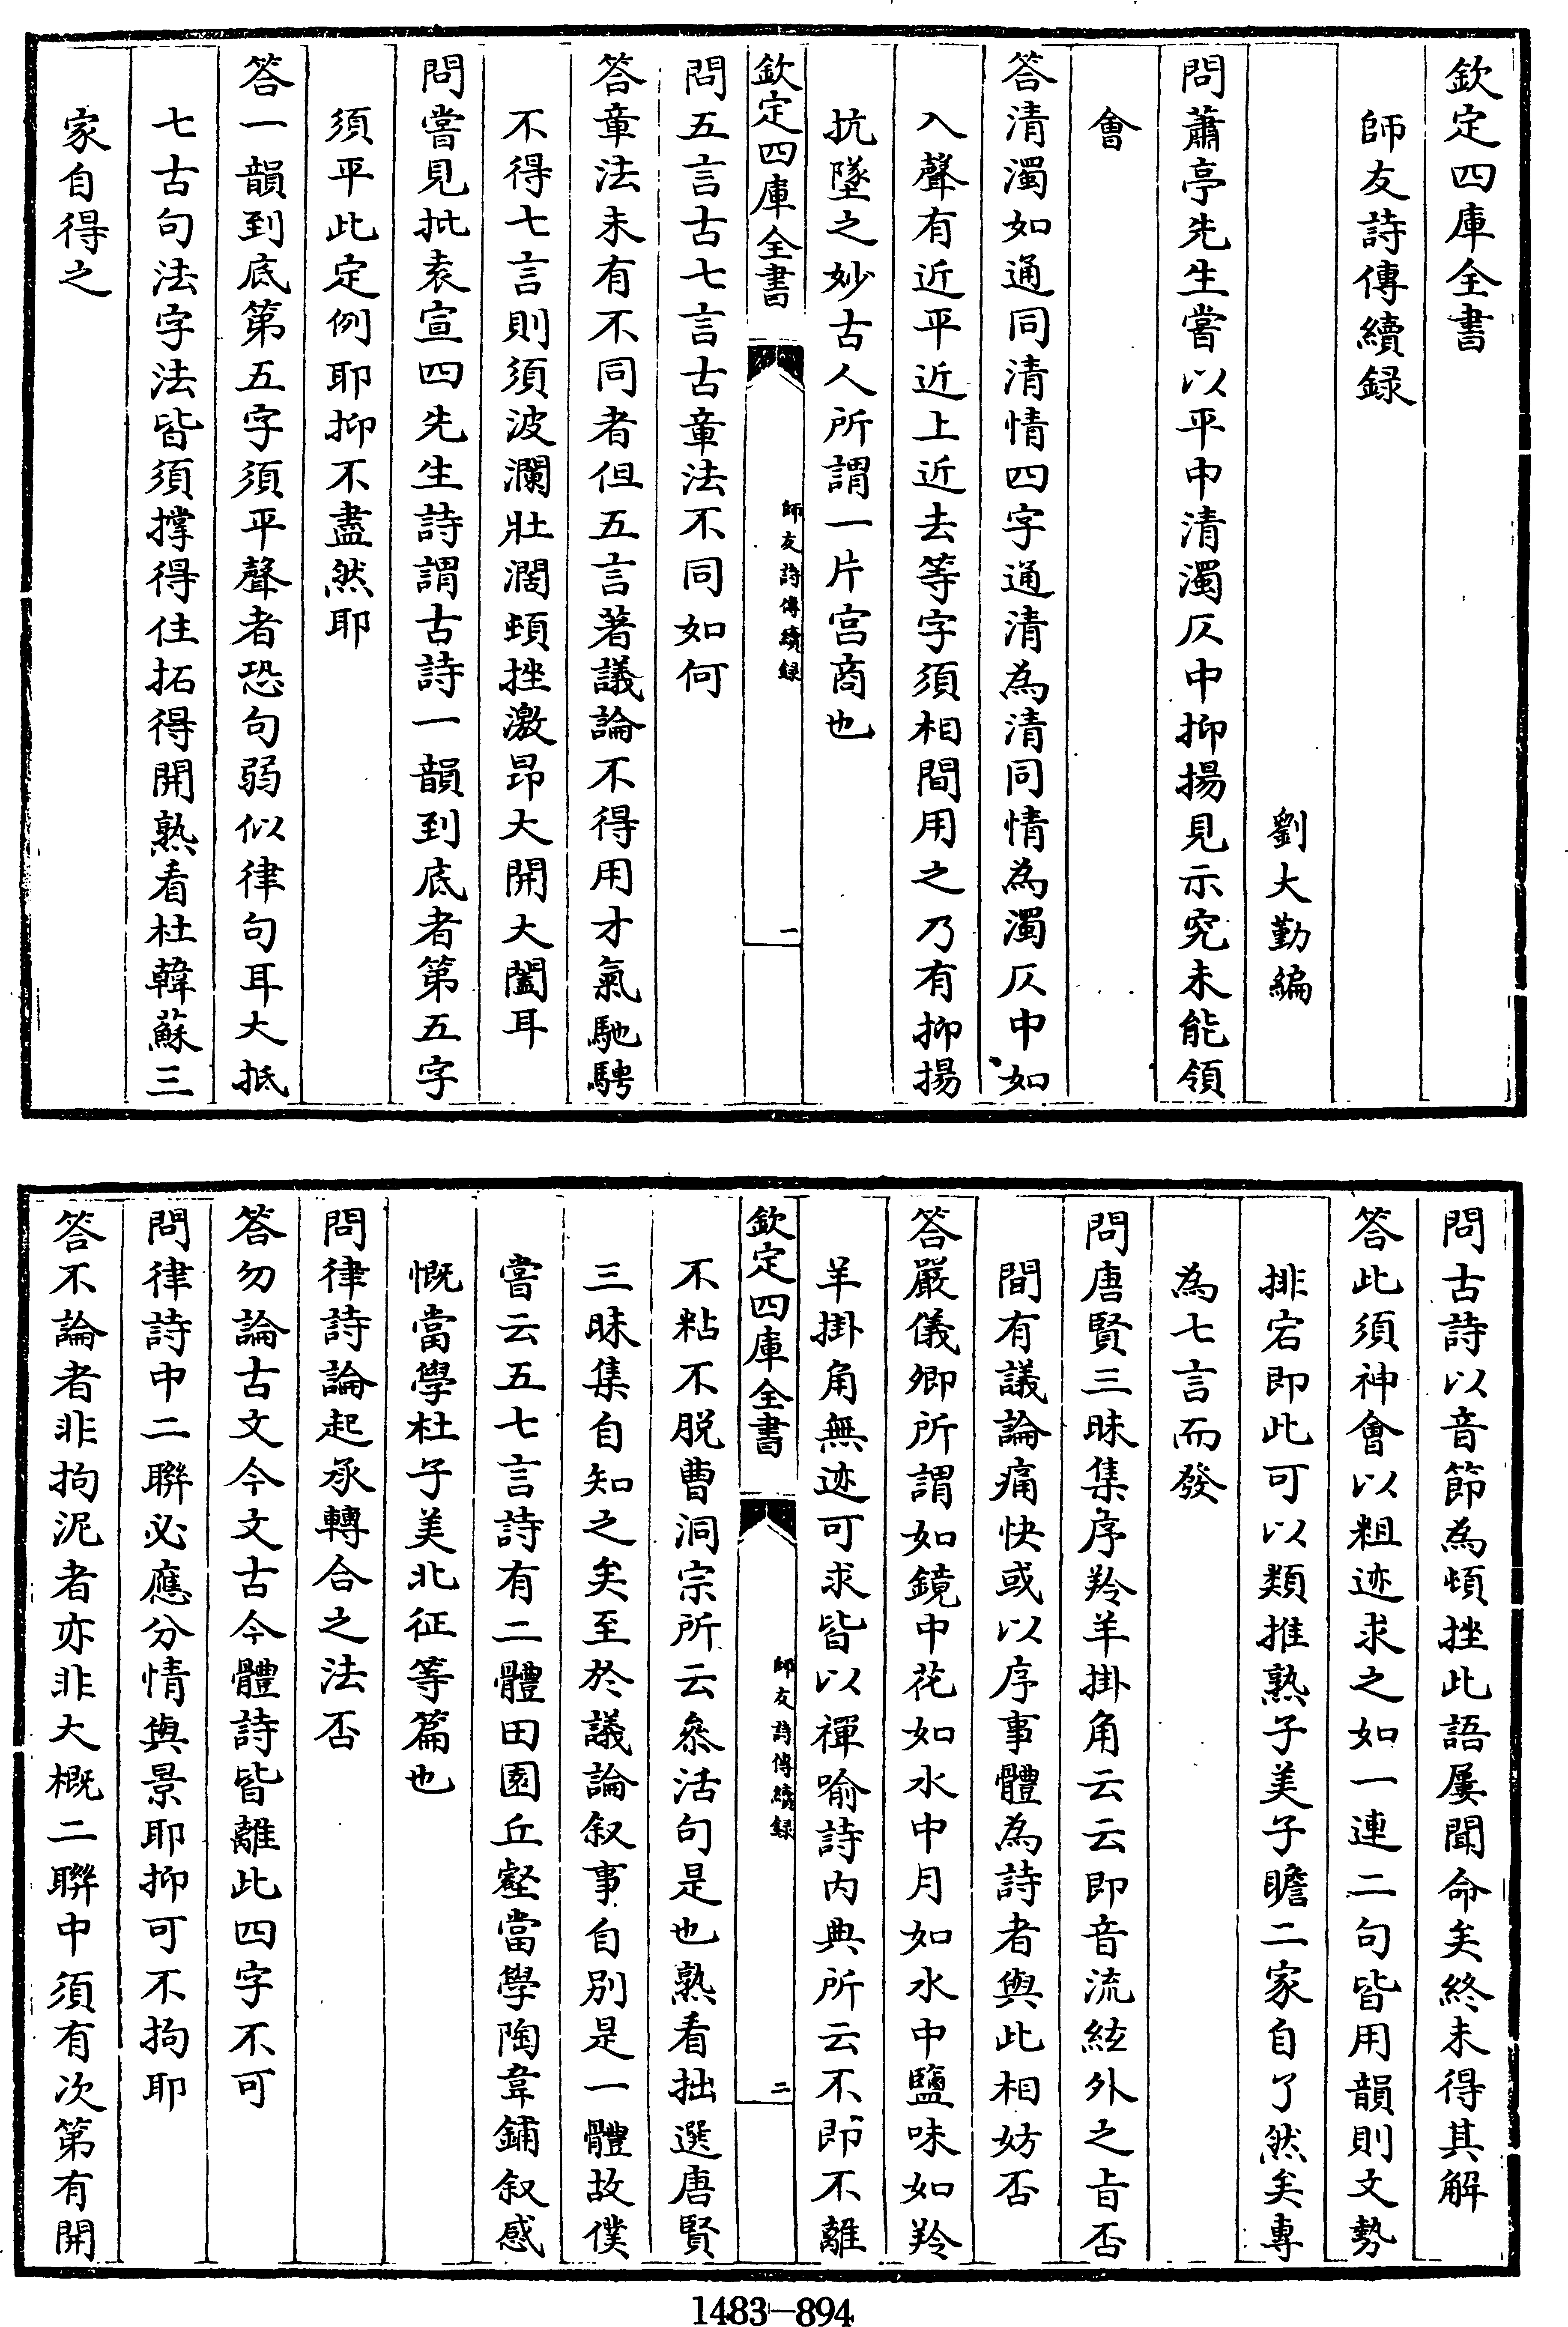 欽定四庫全書
師友詩傳續録
劉大勤編
問蕭亭先生嘗以平中清濁仄中抑揚見示究未能領
會
答清濁如通同清情四字通清為清同情為濁仄中如
入聲有近平近上近去等字須相間用之乃有抑揚
抗墜之妙古人所謂一片宫商也
欽定四庫全書
師友詩傳續録
一
問五言古七言古章法不同如何
答章法未有不同者但五言著議論不得用才氣馳騁
不得七言則須波瀾壯濶頓挫激昂大開大闔耳
問嘗見批袁宣四先生詩謂古詩一韻到底者第五字
須平此定例耶抑不盡然耶
答一韻到底第五字須平聲者恐句弱似律句耳大抵
七古句法字法皆須撑得住拓得開熟看杜韓蘇三
家自得之
問古詩以音節為頓挫此語屢聞命矣終未得其解
答此須神會以粗迹求之如一連二句皆用韻則文勢
排宕即此可以類推熟子美子瞻二家自了然矣專
為七言而發
問唐賢三昧集序羚羊掛角云云即音流絃外之旨否
間有議論痛快或以序事體為詩者與此相妨否
答嚴儀卿所謂如鏡中花如水中月如水中鹽味如羚
羊掛角無迹可求皆以禪喻詩内典所云不即不離
欽定四庫全書
師友詩傳續録
二
不粘不脱曹洞宗所云叅活句是也熟看拙選唐賢
三昧集自知之矣至於議論叙事自别是一體故僕
嘗云五七言詩有二體田園丘壑當學陶韋鋪叙感
慨當學杜子美北征等篇也
問律詩論起承轉合之法否
答勿論古文今文古今體詩皆離此四字不可
問律詩中二聯必應分情與景耶抑可不拘耶
答不論者非拘泥者亦非大概二聯中須有次第有開
1483-894